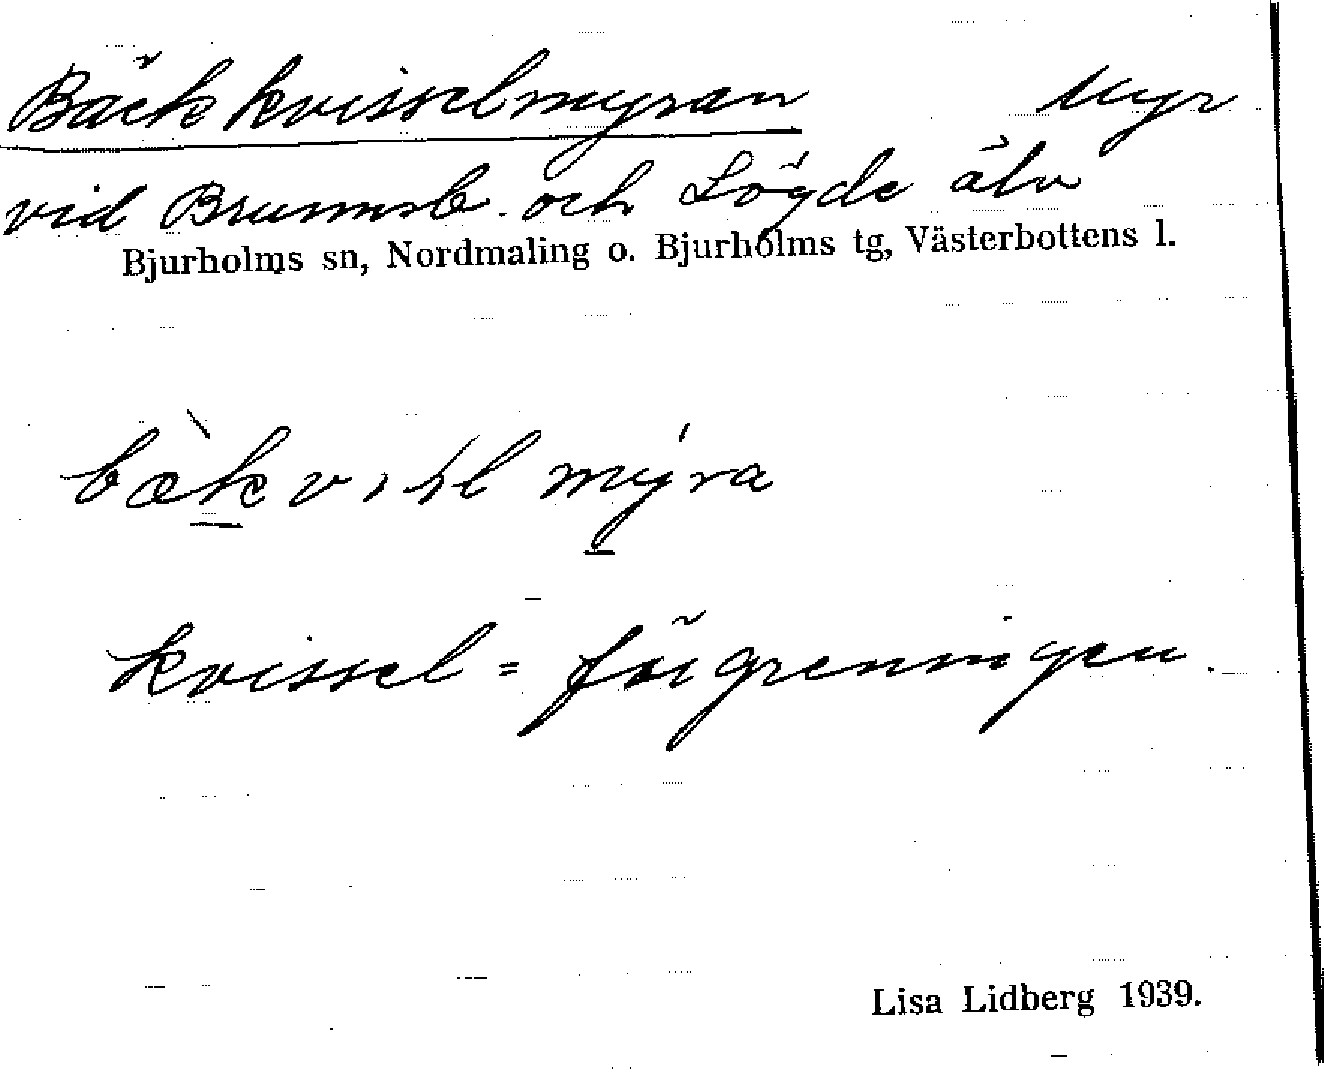 Bäckkvisselmyran Myr
vid Brumsb. och Lögde älv
Bjurholms sn, Nordmaling o. Bjurholms tg, Västerbottens l.
kvissel = förgreningen.
Lisa Lidberg 1939.